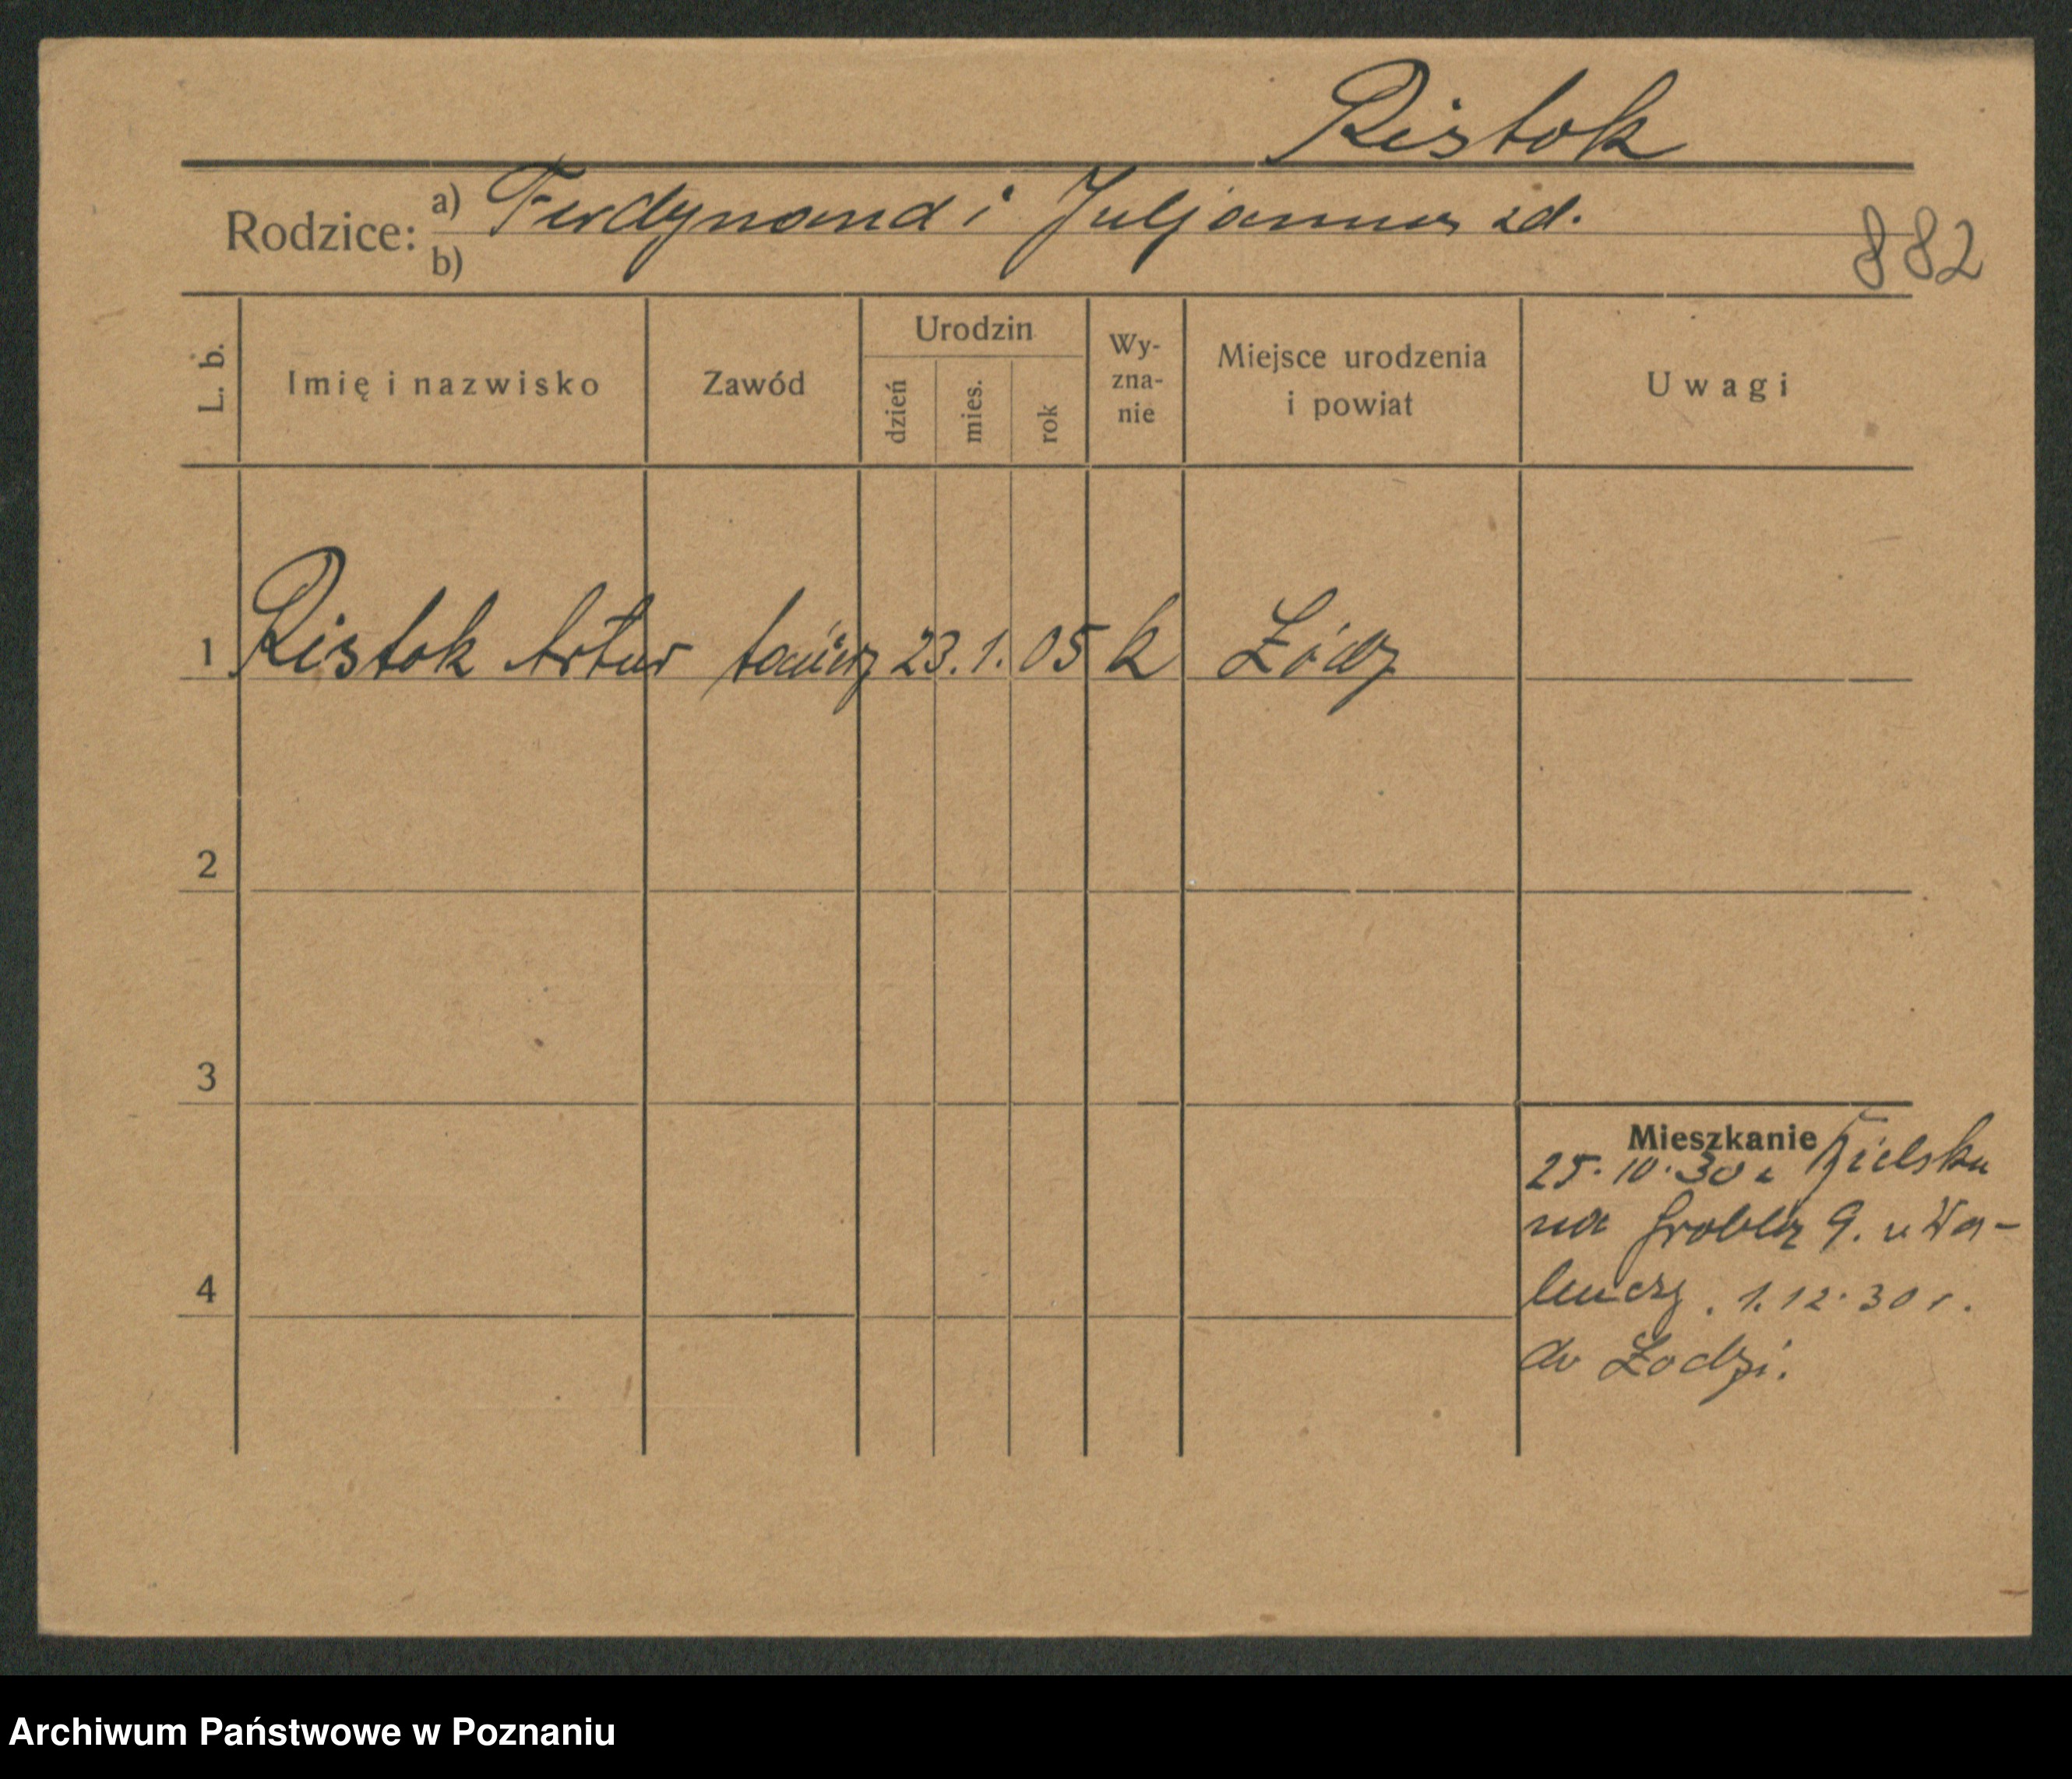 Ristok
Rodzice: a) Ferdynand i Juljanna zd.
b)
882
L. b. Imię i nazwisko Zawód Urodzin dzień mies. rok Wy-zna-nie Miejsce urodzenia i powiat Uwagi
1 Ristok Artur 23. 1. 05 k Łódź
2
3
4
Mieszkanie
25.10.30 z Bielska
na Grobli 9. u Wa-
. 1.12.30 r.
do Łodzi.
Archiwum Państwowe w Poznaniu